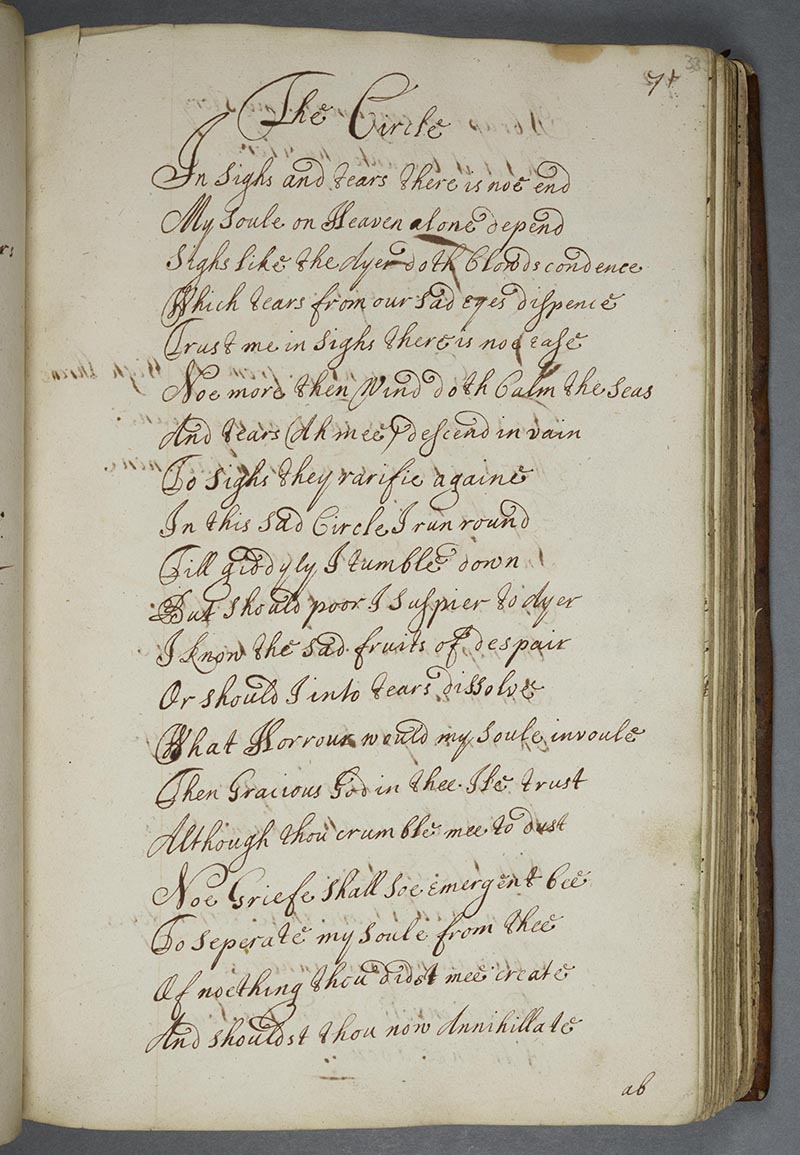 71
33
The Circle
In sighs and tears there is noe end
My soule on Heaven alone depend
Sighs like the Ayer doth Clowds condence
Which tears from our sad eyes dispence
Trust me in sighs there is noe ease
Noe more then Wind doth Calm the seas
And tears (Ah mee) descend in vain
To sighs they rarifie againe
In this sad Circle I run round
Till giddyly I tumble down
But should poor I suspier to Ayer
I know the sad fruits of despair
Or should I into tears dissolve
What Horrour would my soule invoule
Then Gracious God in thee I'le trust
Although thou crumble mee to dust
Noe Griefe shall soe emergent bee
To seperate my soule from thee
Of noething thou didst mee create
And shouldst thou now Annihillate
ab